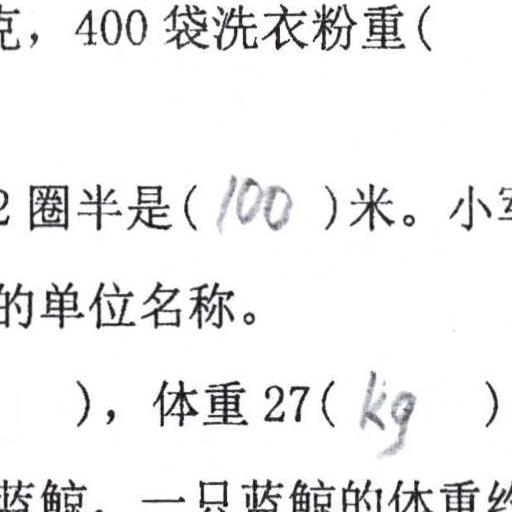 克，400 袋洗衣粉重(
2 圈半是( 100 )米。小军
的单位名称。
)，体重 27( kg )
蓝鲸，一只蓝鲸的体重约